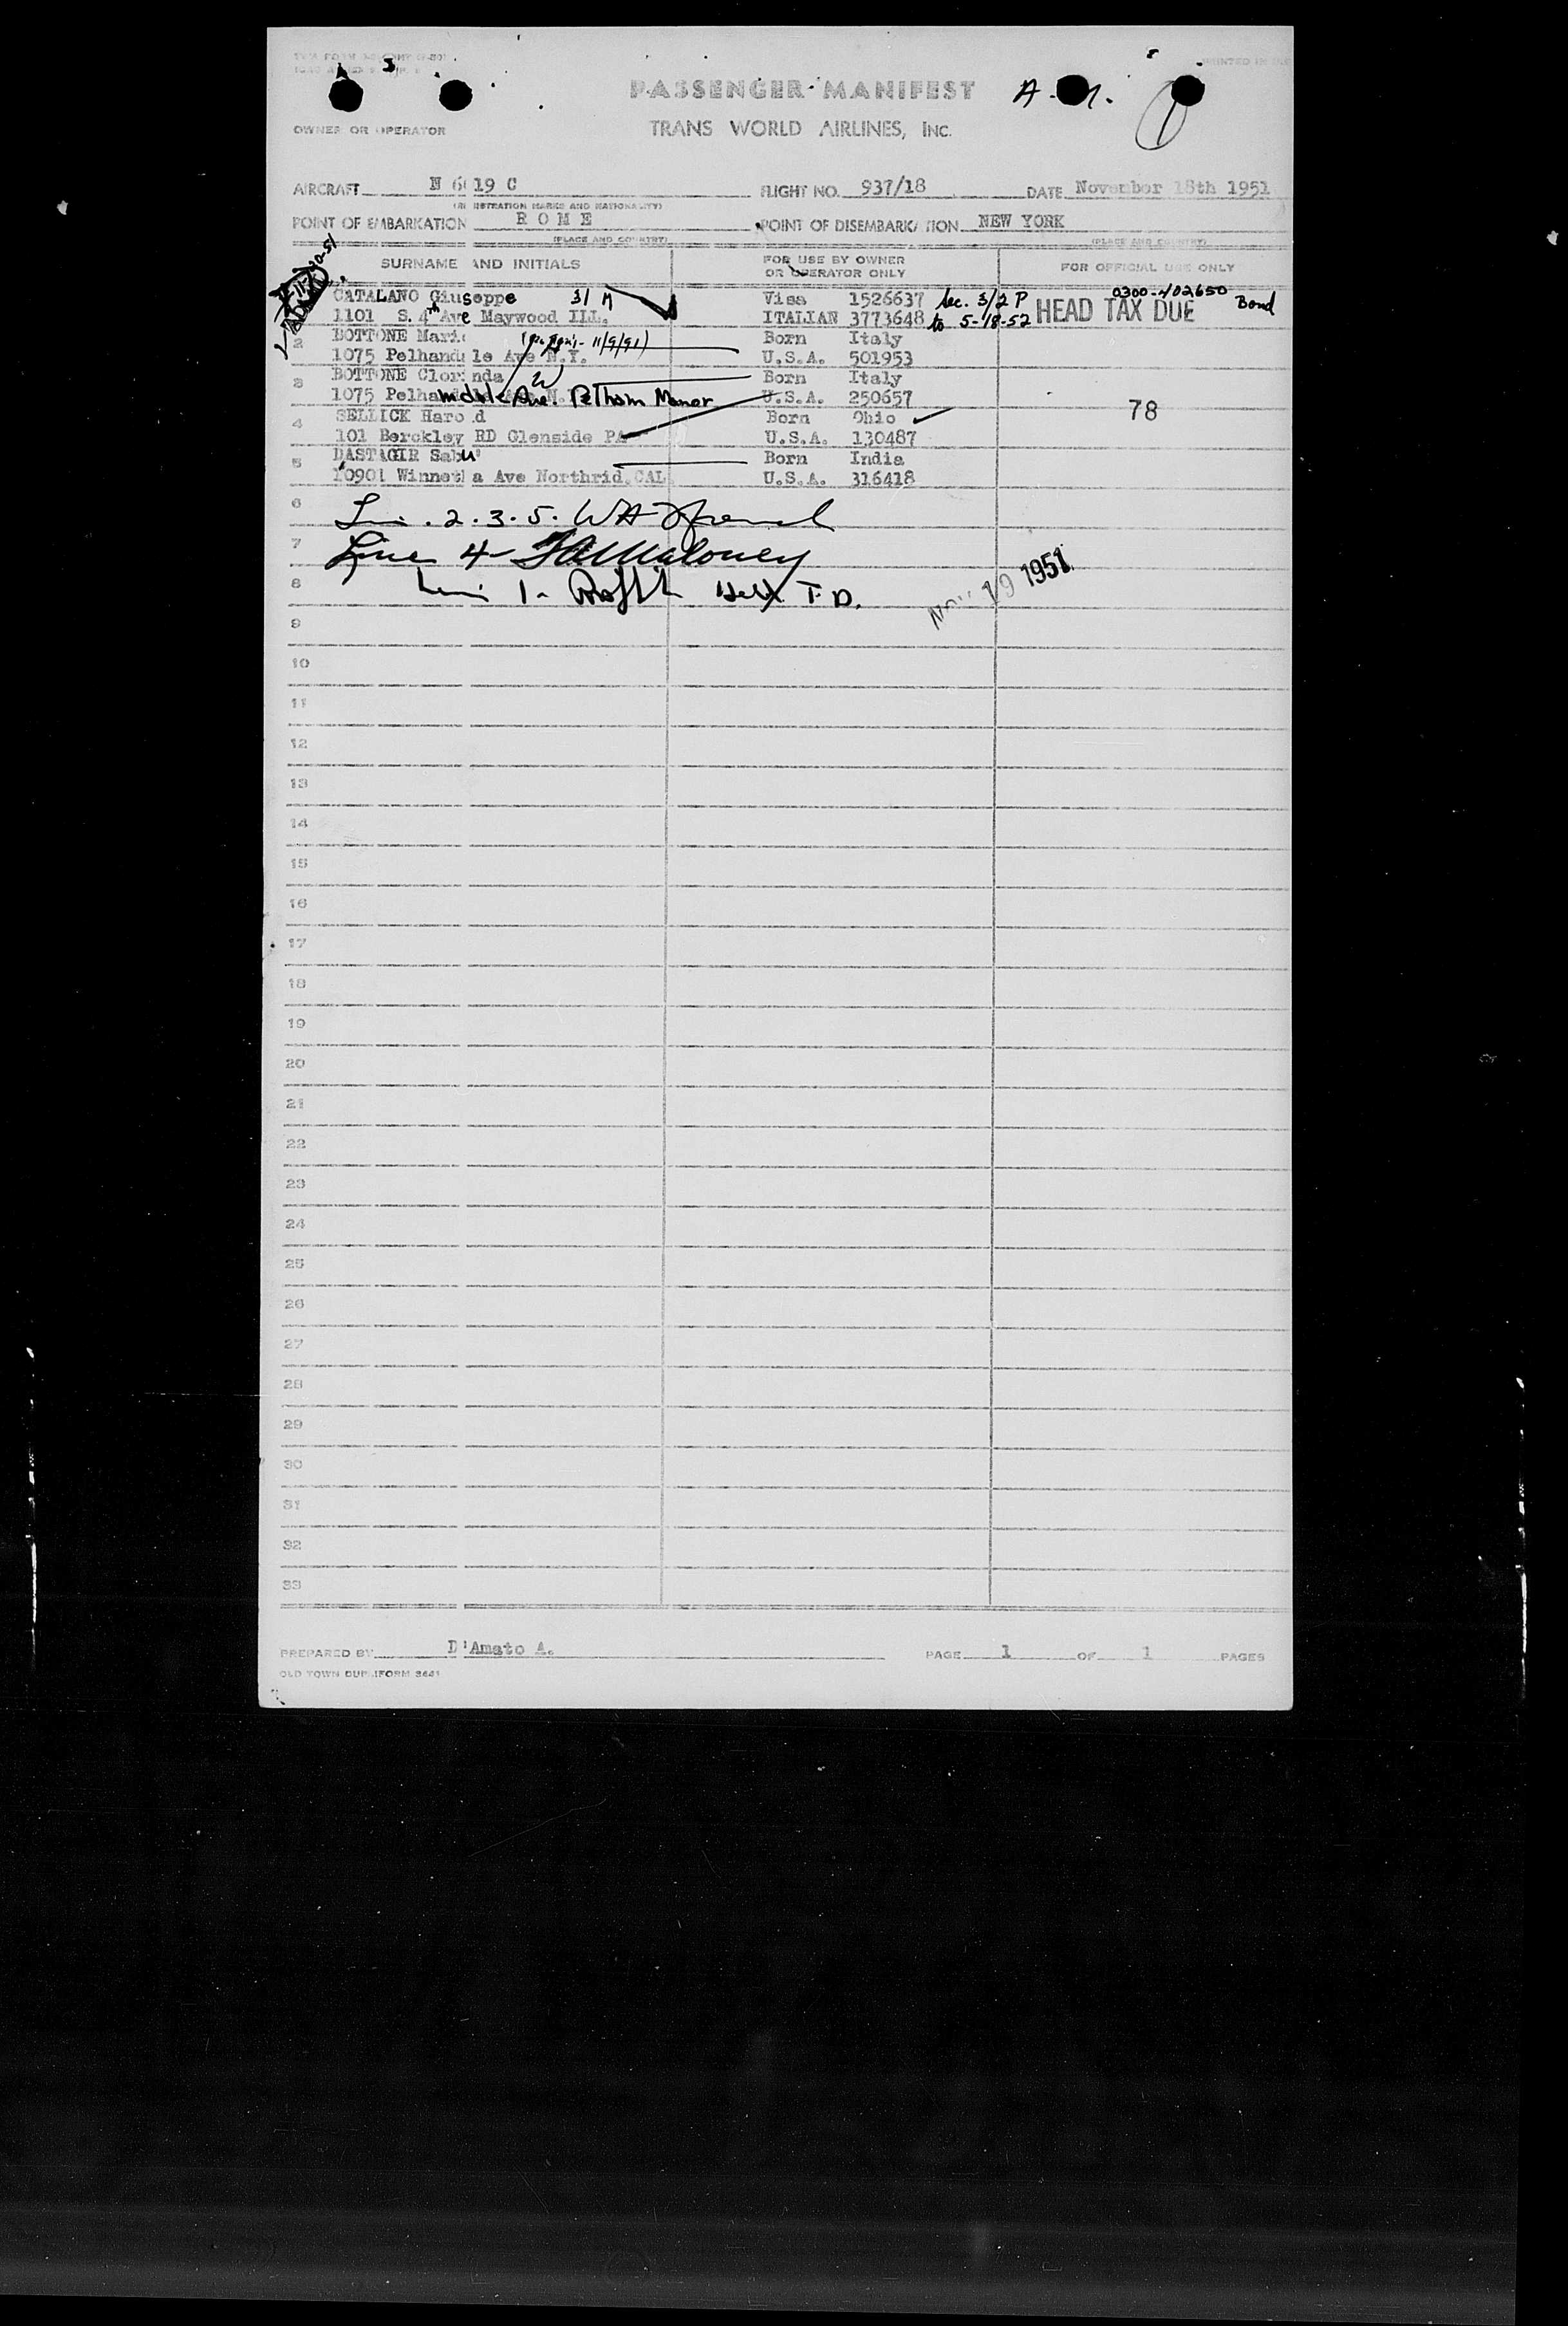 PRINTED IN
PASSENGER MANIFEST
OWNER OR OPERATOR
TRANS WORLD AIRLINES, INC.
AIRCRAFT N 6019 C FLIGHT NO. 937/18 DATE November 18th 1951
POINT OF EMBARKATION ROME POINT OF DISEMBARKATION NEW YORK
(PLACE AND COUNTRY) (PLACE AND COUNTRY)
SURNAME AND INITIALS FOR USE BY OWNER OR OPERATOR ONLY FOR OFFICIAL USE ONLY
CATALANO Giuseppe 31 M Visa 1526637 Sec. 3/2 P 0300-402650 Bond
1101 S. 4th Ave Maywood ILL. ITALIAN 3773648 to 5-18-52 HEAD TAX DUE
2 BOTTONE Mari 11/9/91) Born Italy
1075 Pelhamdale Ave N.Y. U.S.A. 501953
3 BOTTONE Clorinda W Born Italy
1075 Pelham Ave. Pelham Manor U.S.A. 250657
4 SELLICK Harold Born Ohio 78
101 Berckley RD Glenside PA U.S.A. 130487
5 DASTAGIR Sabu Born India
10901 Winnetka Ave Northrid.CAL U.S.A. 316418
6 2.3.5.
7 Line 4- Maloney
8 1- Held T.D. NOV 19 1951
9
10
11
12
13
14
15
16
17
18
19
20
21
22
23
24
25
26
27
28
29
30
31
32
33
PREPARED BY D'Amato A. PAGE 1 OF 1 PAGES
OLD TOWN DUPLIFORM